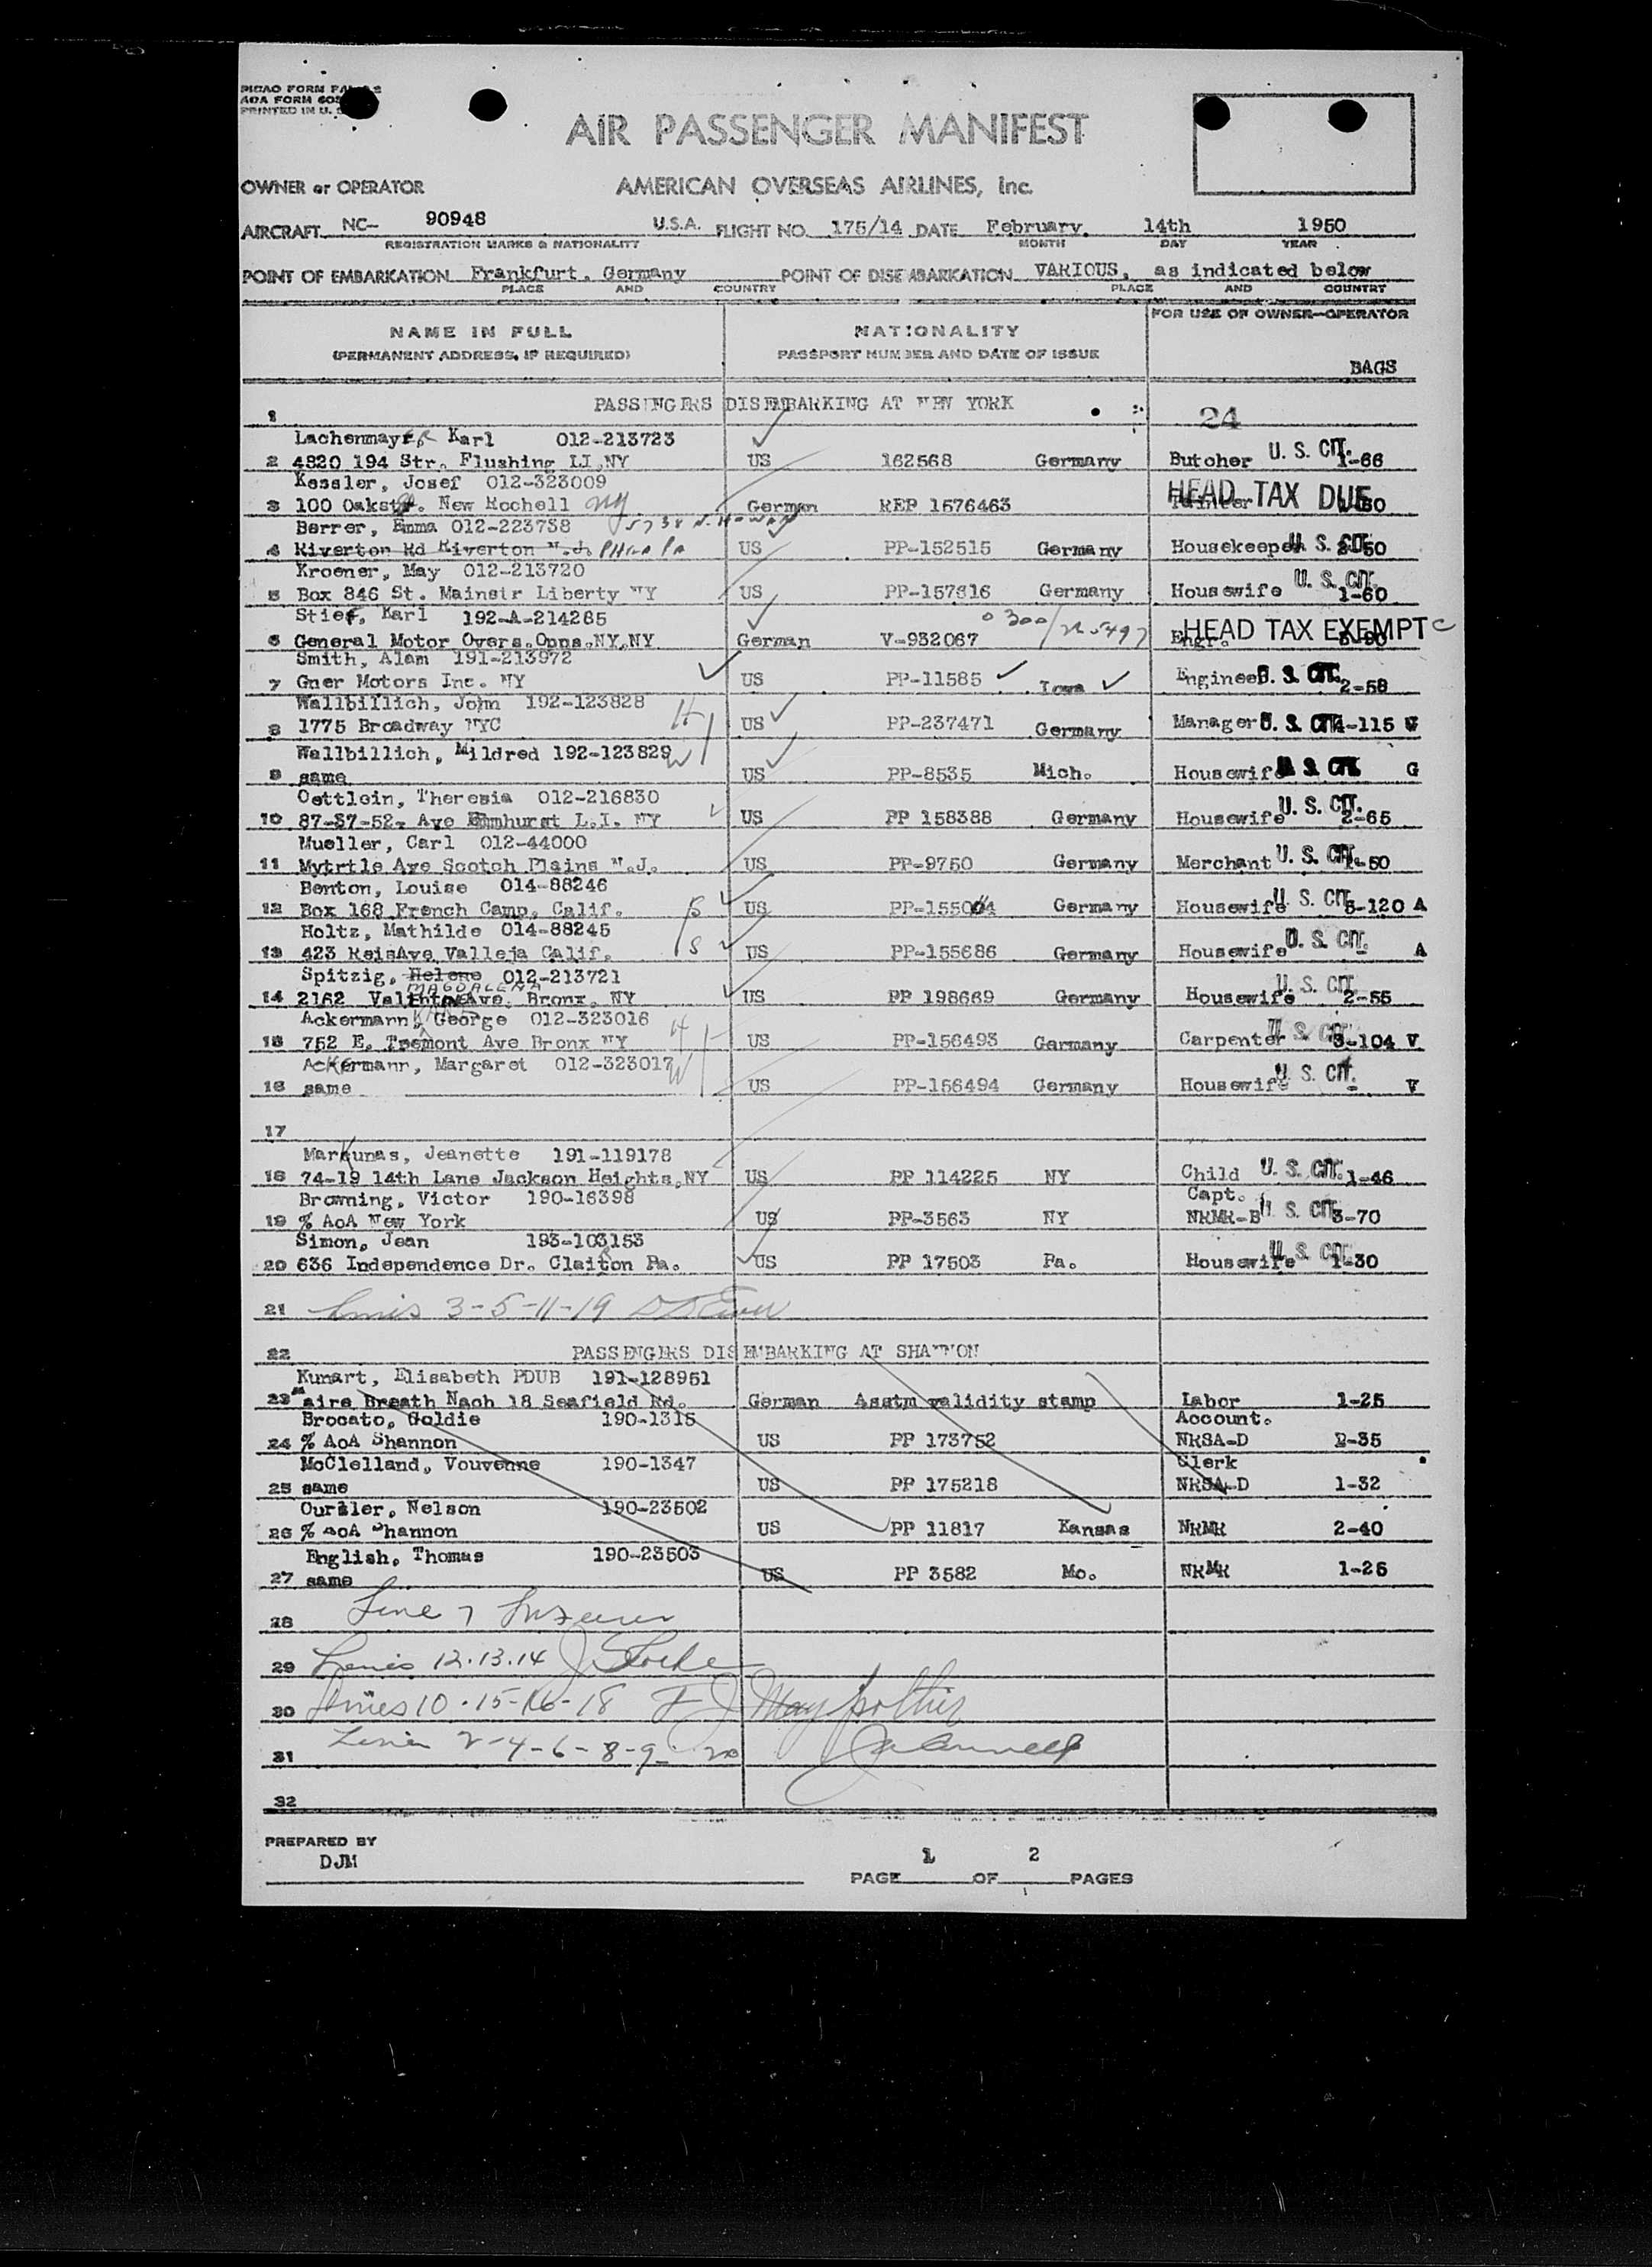 AIR PASSENGER MANIFEST
OWNER or OPERATOR AMERICAN OVERSEAS AIRLINES, Inc.
AIRCRAFT NC- 90948 U.S.A. FLIGHT NO. 175/14 DATE February 14th 1950
REGISTRATION MARKS & NATIONALITY MONTH DAY YEAR
POINT OF EMBARKATION Frankfurt, Germany POINT OF DISEMBARKATION VARIOUS, as indicated below
PLACE AND COUNTRY PLACE AND COUNTRY
NAME IN FULL NATIONALITY FOR USE OF OWNER-OPERATOR
(PERMANENT ADDRESS, IF REQUIRED) PASSPORT NUMBER AND DATE OF ISSUE
BAGS
1 PASSENGERS DISEMBARKING AT NEW YORK 24
Lachenmayer, Karl 012-213723
2 4820 194 Str. Flushing LI.NY US 162568 Germany Butcher U. S. CIT. 1-66
Kessler, Josef 012-323009
3 100 Oakstr. New Rochell NY German REP 1576463 HEAD TAX DUE
Berrer, Emma 012-223738 5738 N.
4 Riverton Rd Riverton N.J. PHILA PA US PP-152515 Germany Housekeeper U. S. CIT. 2-50
Kroener, May 012-213720
5 Box 846 St. Mainstr Liberty NY US PP-157616 Germany Housewife U. S. CIT. 1-60
Stief, Karl 192-A-214265
6 General Motor Overs.Opns.NY.NY German V-932067 0 300/ Engr. HEAD TAX EXEMPT C
Smith, Alam 191-213972
7 Gner Motors Inc. NY US PP-11585 Iowa Engineer U. S. CIT. 2-58
Wallbillich, John 192-123828 H
8 1775 Broadway NYC US PP-237471 Germany Manager U. S. CIT. 4-115 G
Wallbillich, Mildred 192-123829 W
9 same US PP-8535 Mich. Housewife U. S. CIT. G
Oettlein, Theresia 012-216830
10 87-37-52- Ave Elmhurst L.I. NY US PP 158388 Germany Housewife U. S. CIT. 2-65
Mueller, Carl 012-44000
11 Mytrtle Ave Scotch Plains N.J. US PP-9750 Germany Merchant U. S. CIT. 1-50
Benton, Louise 014-88246
12 Box 168 French Camp, Calif. S US PP-155064 Germany Housewife U. S. CIT. 5-120 A
Holtz, Mathilde 014-88245
13 423 ReisAve Valleja Calif. S US PP-155686 Germany Housewife U. S. CIT. - A
Spitzig, Helene 012-213721
MAGDALENA
14 2162 Valentine Ave. Bronx. NY US PP 198669 Germany Housewife U. S. CIT. 2-55
Ackermann, George 012-323016 H
15 752 E. Tremont Ave Bronx NY US PP-156493 Germany Carpenter U. S. CIT. 3-104 V
Ackermann, Margaret 012-323017 W
16 same US PP-156494 Germany Housewife U. S. CIT. - V
17
Markunas, Jeanette 191-119178
18 74-19 14th Lane Jackson Heights,NY US PP 114225 NY Child U. S. CIT. 1-46
Browning, Victor 190-16398 Capt.
19 % AoA New York US PP-3563 NY NRMR-B U. S. CIT. 3-70
Simon, Jean 193-103153
20 636 Independence Dr. Clairton Pa. US PP 17503 Pa. Housewife U. S. CIT. 1-30
21 Lines 3-5-11-19
22 PASSENGERS DISEMBARKING AT SHANNON
Kunart, Elisabeth PDUB 191-128951
23 aire Breath Nach 18 Seafield Rd. German Asstm validity stamp Labor 1-25
Brocato, Goldie 190-1315 Account.
24 % AoA Shannon US PP 173752 NRSA-D 2-35
McClelland, Vouvenne 190-1347 Clerk
25 same US PP 175218 NRSA-D 1-32
Oursler, Nelson 190-23502
26 % AoA Shannon US PP 11817 Kansas NRMR 2-40
English, Thomas 190-23503
27 same US PP 3582 Mo. NRMR 1-25
28 Line 7
29 Lines 12.13.14
30 Lines 10-15-16-18
31 Lines 2-4-6-8-9-20
32
PREPARED BY
DJM
PAGE 1 OF 2 PAGES